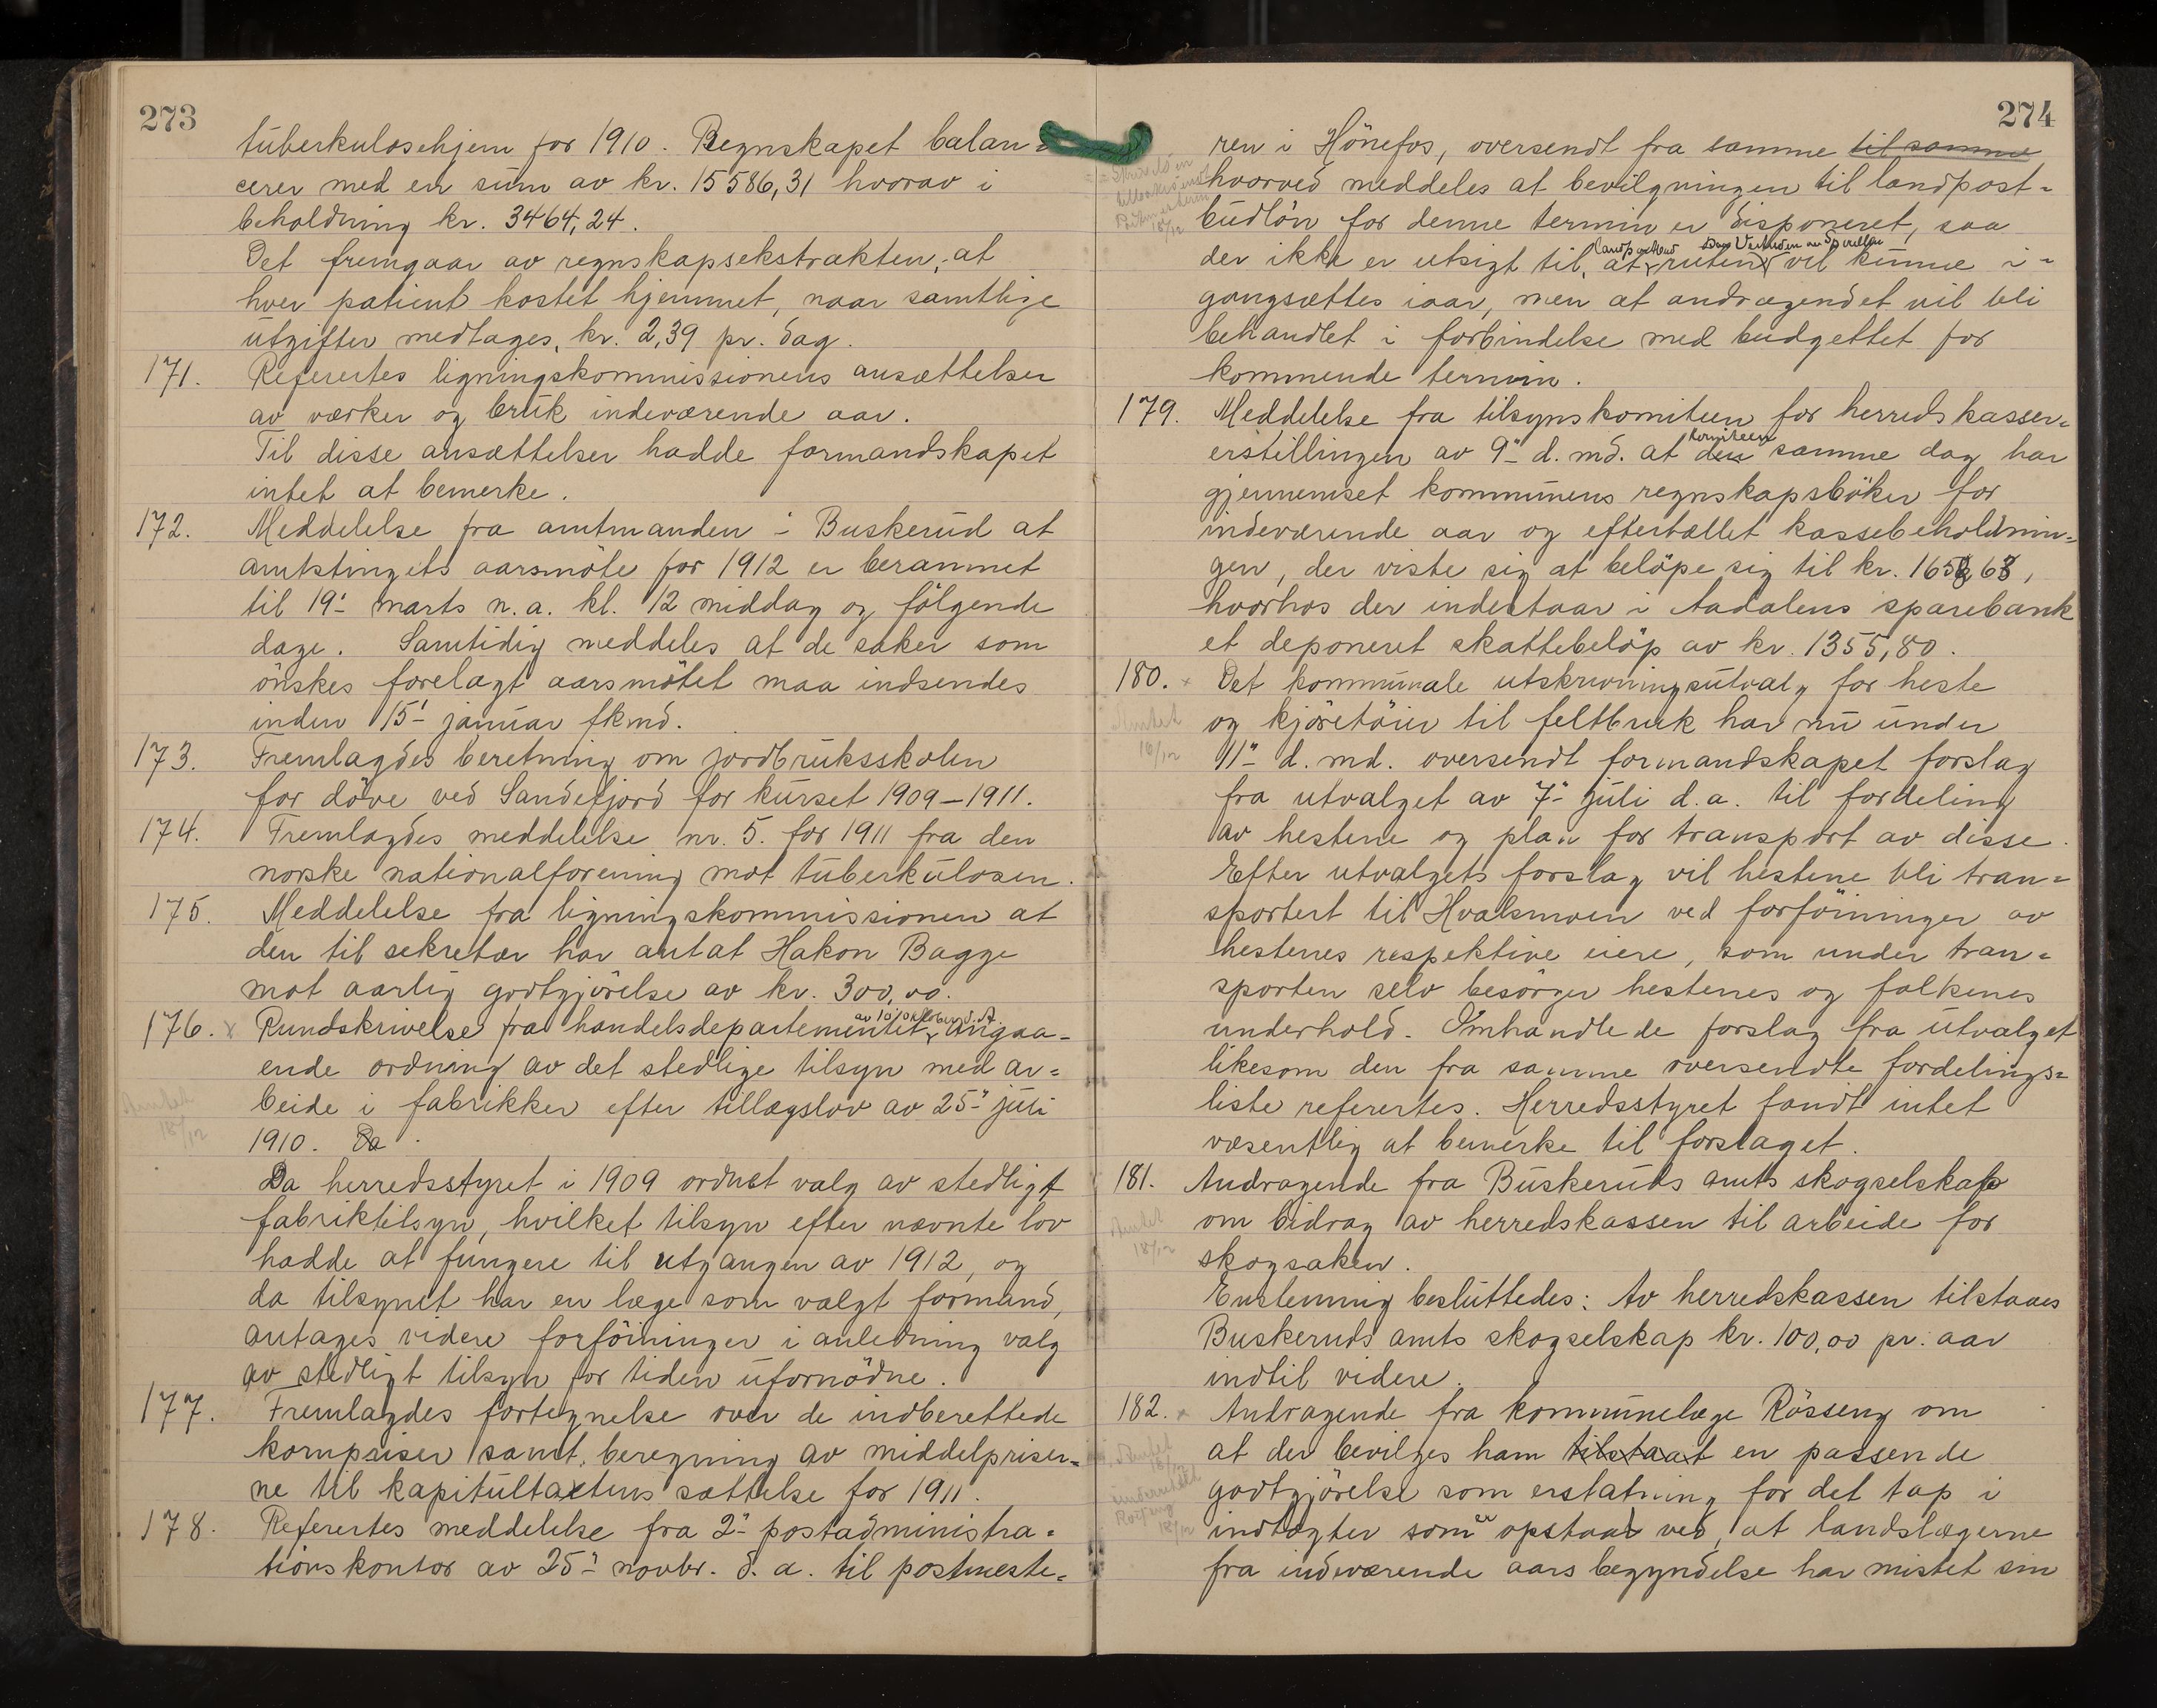 273
tuberkulosehjem for 1910. Regnskapet balan=
cerer med en sum av kr. 15586,31 hvorav i
beholdning kr. 3464,24.
Det fremgaar av regnskapsekstrakten, at
hver patient kostet hjemmet, naar samtlige
utgifter medtages, kr. 2,39 pr. dag.
171. Referertes ligningskommissionens ansættelser
av værker og bruk indeværende aar.
Til disse ansættelser hadde formandskapet
intet at bemerke.
172. Meddelelse fra amtmanden i Buskerud at
amtstingets aarsmöte for 1912 er berammet
til 19- marts n.a. kl. 12 middag og fölgende
dage. Samtidig meddeles at de saker som
önskes forelagt aarsmötet maa indsendes
inden 15- januar fkmd.
173. Fremlagdes beretning om jordbruksskolen
for döve ved Sandefjord for kurset 1909-1911.
174. Fremlagdes meddelelse nr. 5. for 1911 fra den
norske nationalforening mot tuberkulosen.
175. Meddelelse fra ligningskommissionen at
den til sekretær har antat Hakon Bagge
mot aarlig godtgjörelse av kr. 300,00.
av 10 oktober d.A.
176. x Rundskrivelse fra handelsdepartementet, angaa-
ende ordning av det stedlige tilsyn med ar=
beide i fabrikker efter tillægslov av 25- juli
Amtet 18/12
1910. Da
Da herredsstyret i 1909 ordnet valg av stedligt
fabriktilsyn, hvilket tilsyn efter nævnte lov
hadde at fungere til utgangen av 1912, og
da tilsynet har en læge som valgt formand,
antages videre forföininger i anledning valg
av stedligt tilsyn for tiden ufornödne.
177. Fremlagdes fortegnelse over de indberettede
kornpriser samt beregning av middelpriser=
ne til kapitultakstens sættelse for 1911.
178. Referertes meddelelse fra 2- postadministra=
tionskontor av 25- novbr. d.a. til postmeste=
274
ren i Hönefos, oversendt fra samme til samme
hvorved meddeles at bevilgningen til landpost=
budlön for denne termin er disponeret, saa
landpostbud
der ikke er utsigt til, at ruten vil kunne i=
gangsættes iaar, men at andragendet vil bli
behandlet i forbindelse med budgettet for
kommende termin.
179. Meddelelse fra tilsynskomiteen for herredskasser=
komiteen
erstillingen av 9- d. md. at den samme dag har
gjennemset kommunens regnskapsböker for
indeværende aar og eftertællet kassebeholdnin=
gen, der viste sig at belöpe sig til kr.
hvorhos der indestaar i Aadalens sparebank
et deponeret skattebelöp av kr. 1355,80.
180. x Det kommunale utskrivningsutvalg for heste
Amtet 16/12
og kjöretöier til feltbruk har nu under
11- d. md. oversendt formandskapet forslag
fra utvalget av 7- juli d.a. til fordeling
av hestene og plan for transport av disse.
Efter utvalgets forslag vil hestene bli tran=
sportert til Hvalsmoen ved forföininger av
hestenes respektive eiere, som under tran=
sporten selv besörger hestenes og folkenes
underhold. Omhandlede forslag fra utvalget
likesom den fra samme oversendte fordelings=
liste referertes. Herredsstyret fandt intet
væsentlig at bemerke til forslaget.
181. Andragende fra Buskeruds amts skogselskap
Amtet 18/12
om bidrag av herredskassen til arbeide for
skogsaken.
Enstemmig besluttedes: Av herredskassen tilstaaes
Buskeruds amts skogselskap kr. 100,00 pr. aar
indtil videre.
182. x Andragende fra kommunelæge Rösseng om
at der bevilges ham tilstaat en passende
godtgjörelse som erstatning for det tap i
indtægter som er opstaat ved, at landslægerne
fra indeværende aars begyndelse har mistet sin